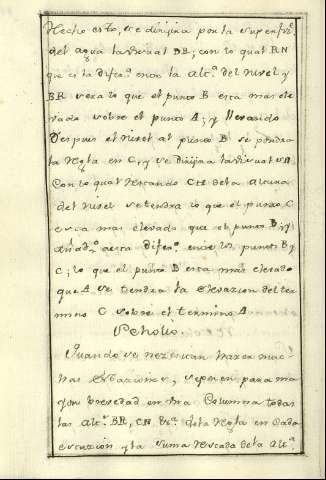 Hecho esto, se dirijira por la superfiz.
del agua la visual DB; con lo qual RN
que es la difer.ª entre la alt.ª del Nivel y
BR sera lo que el punto B esta mas ele
vado sobre el punto A; y llevando
despues el Nivel al punto B se pondra
la Regla en C, y se dirijira la visual
Con lo qual Restando CN dela altura
del Nivel se tendra lo que el punto C
esta mas elevado que el punto B; y
añad.do a esta difer.ª entre los puntos B y
C; lo que el punto B esta mas elevado
que A se tendra la elevazion del ter
mino C sobre el termino A
Scholio.
Quando se nezesitan hazer mu
chas estaziones, se ponen para ma
yor brevedad en una Columna todas
las alt.s BR, CN &.ª dela Regla en Cada
estazion y la suma Restada dela alt.ª